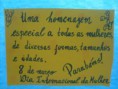 Uma homenagem
especial a todas as mulheres
de diversas formas, tamanhos
e idades.
Parabéns!
8 de março
Dia Internacional da Mulher